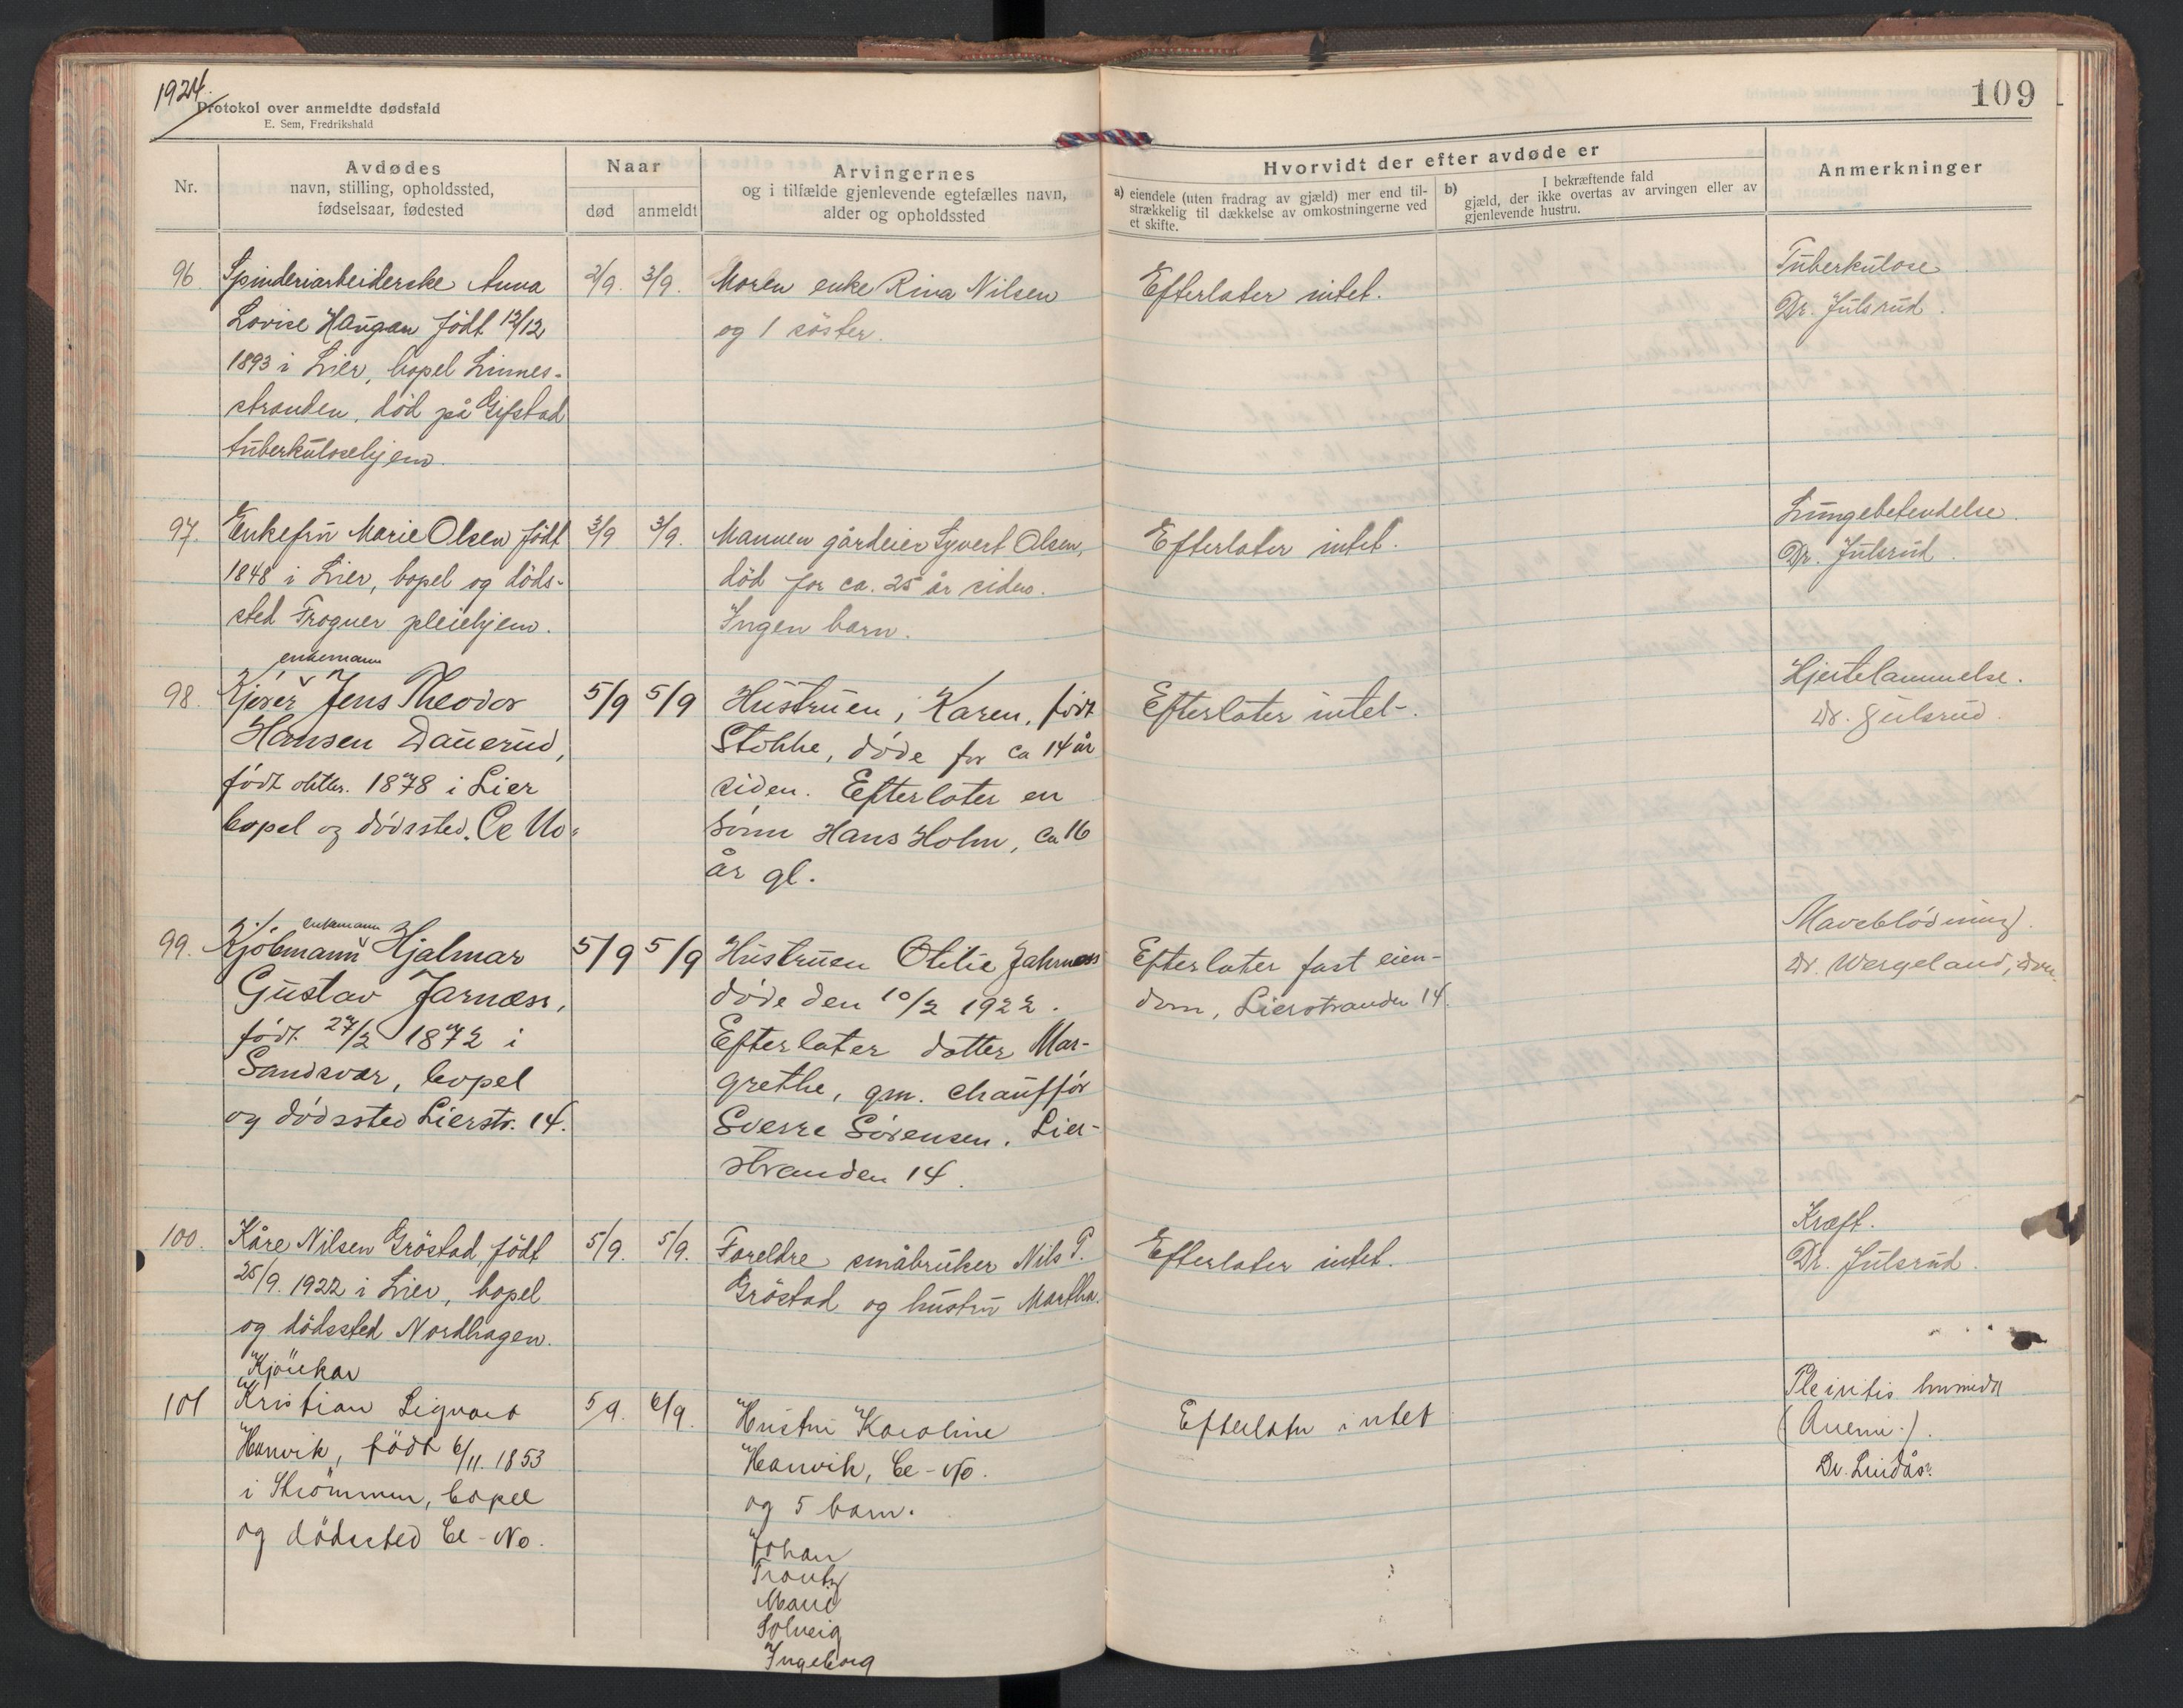 1924.
Protokol over anmeldte dødsfald
E. Sem, Fredrikshald
109
Nr.
Avdødes
navn, stilling, opholdssted,
fødselsaar, fødested
Naar
død
anmeldt
Arvingernes
og i tilfælde gjenlevende egtefælles navn,
alder og opholdssted
Hvorvidt der efter avdøde er
a) eiendele (uten fradrag av gjæld) mer end til-
strækkelig til dækkelse av omkostningerne ved
et skifte.
b) I bekræftende fald
gjæld, der ikke overtas av arvingen eller av
gjenlevende hustru.
Anmerkninger
96. Spinderiarbeiderske Anna
Lovise Haugan født 12/12
1893 i Lier, bopel Linnes-
stranden, død på Gifstad
tuberkulosehjem.
2/9. 3/9.
Moren enke Rina Nilsen
og 1 søster.
Efterlater intet.
Tuberkulose
Dr. Julsrud.
97. Enkefru Marie Olsen født
1848 i Lier, bopel og døds-
sted Frogner pleiehjem.
3/9 3/9.
Mannen gårdeier Syvert Olsen,
død for ca. 25 år siden.
Ingen barn.
Efterlater intet.
Lungebetendelse.
Dr. Julsrud.
enkemann
98. Kjører Jens Theodor
Hansen Dauerud,
født 1878 i Lier
bopel og dødssted. Ce No.
5/9 5/9
Hustruen, Karen, født
Stokke, døde for ca 14 år
siden. Efterlater en
sønn Hans Holm, ca 16
år gl.
Efterlater intet.
Hjertelammelse.
Dr. Julsrud.
enkemann
99. Kjøbmann Hjalmar
Gustav Jarness,
født 27/2 1872 i
Sandsvær, bopel
og dødssted Lierstr. 14.
5/9 5/9
Hustruen Otilie Jahrness
døde den 10/2 1922.
Efterlater datter Mar-
grethe, gm. chauffør
Sverre Sørensen, Lier-
stranden 14.
Efterlater fast eien-
dom, Lierstranden 14.
Maveblødning.
Dr. Wergeland, Drm.
100. Kåre Nilsen Grøstad, født
25/9. 1922 i Lier, bopel
og dødssted Nordhagen.
5/9. 5/9.
Foreldre småbruker Nils P.
Grøstad og hustru Martha.
Efterlater intet.
Kræft.
Dr. Julsrud.
Kjørekar
101 Kristian Sigvart
Hanvik, født 6/11. 1853
i Strømmen, bopel
og dødssted Ce-No.
5/9. 6/9.
Hustru Karoline
Hanvik, Ce-No.
og 5 barn.
Johan
Trantz
Marie
Solveig
Ingeborg
Efterlater intet
Pleuritis humida
(Anemi.).
Dr. Lindås.